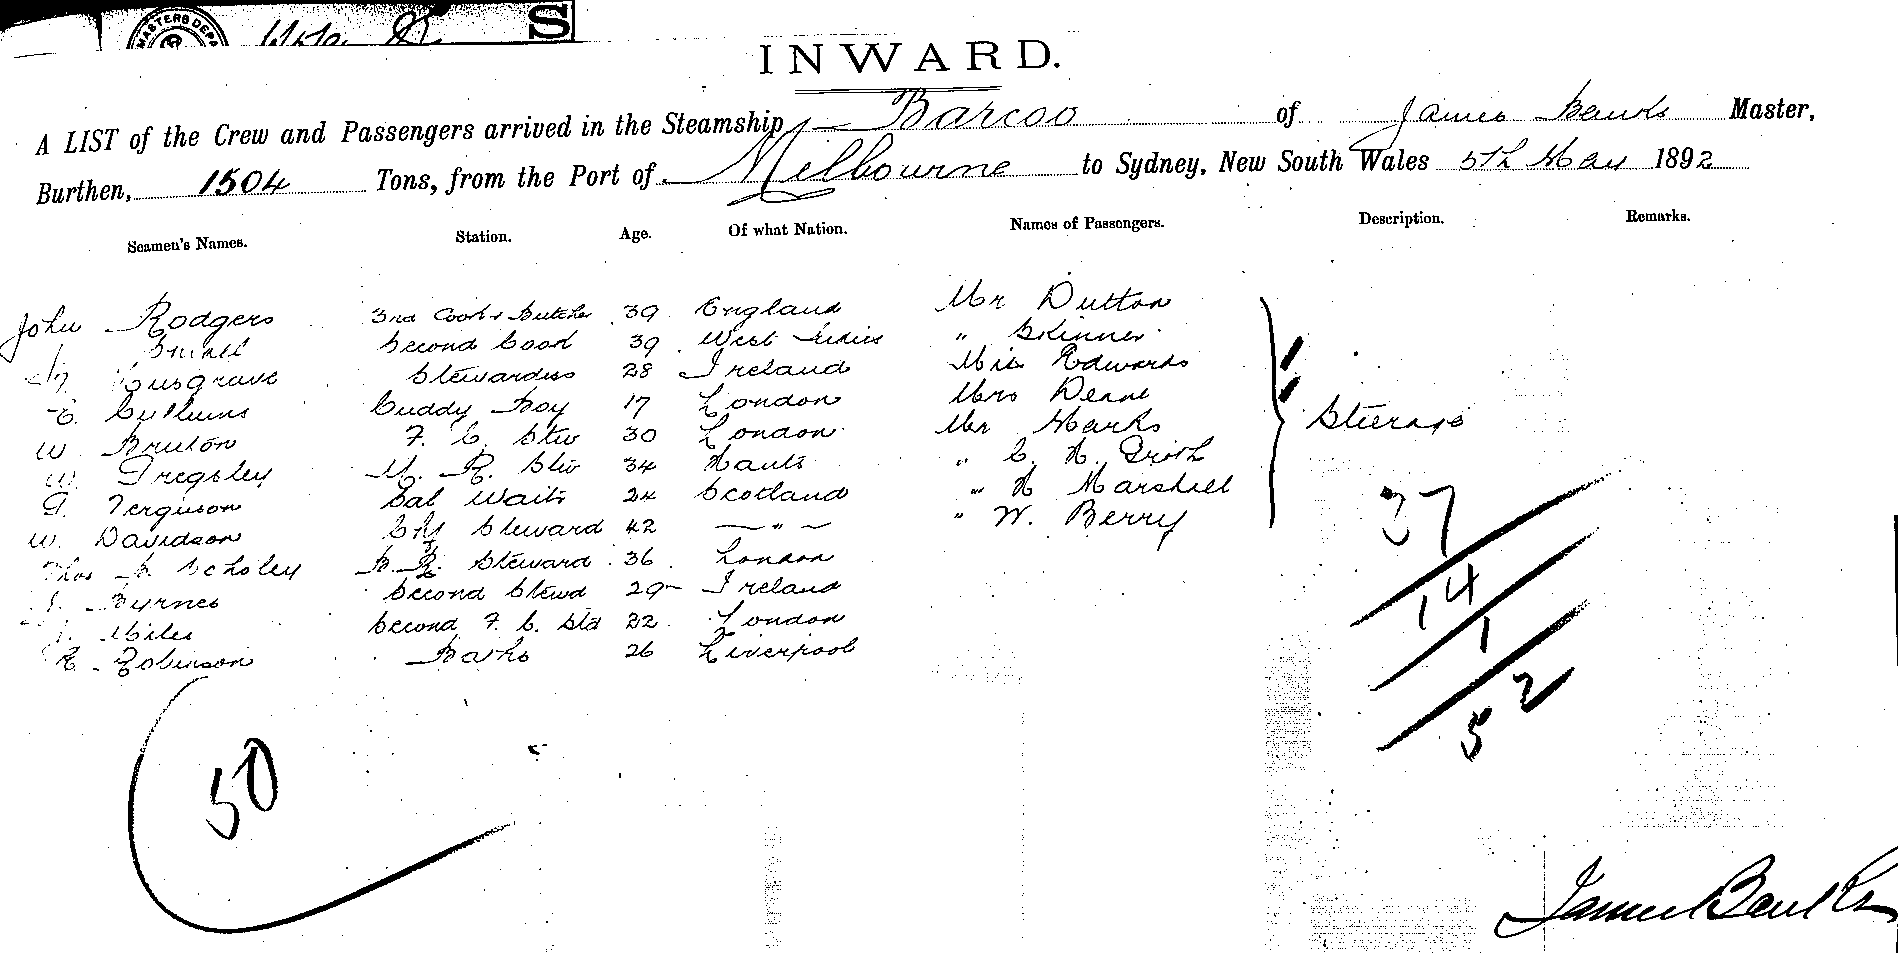 MASTERS DEPA
S
INWARD.
A LIST of the Crew and Passengers arrived in the Steamship Barcoo of James Banks Master,
Burthen, 1504 Tons, from the Port of Melbourne to Sydney, New South Wales 5th May 1892
Seamen's Names. Station. Age. Of what Nation. Names of Passengers. Description. Remarks.
John Rodgers 3rd Cook & Butcher 39 England Mr Dutton
Small Second Cook 39 West Indies " Skinner
Musgrave Stewardess 28 Ireland Miss Edwards
E. Cuddy Boy 17 London Mrs Deane
W Bruton F. C. Stew 30 London Mr Marks Steerage
W. Gregsley M. R. Stew 34 Hants " C. H.
G. Ferguson Sal Waiter 24 Scotland " H Marshall
W. Davidson Steward 42 — " — " W. Berry
Thos Scholey Steward 36 London
J. Byrnes Second Stewd 29 Ireland
J. Miles Second F. C. Std 22 London
E. Robinson Baths 26 Liverpool
37
14
1
52
50
James Banks